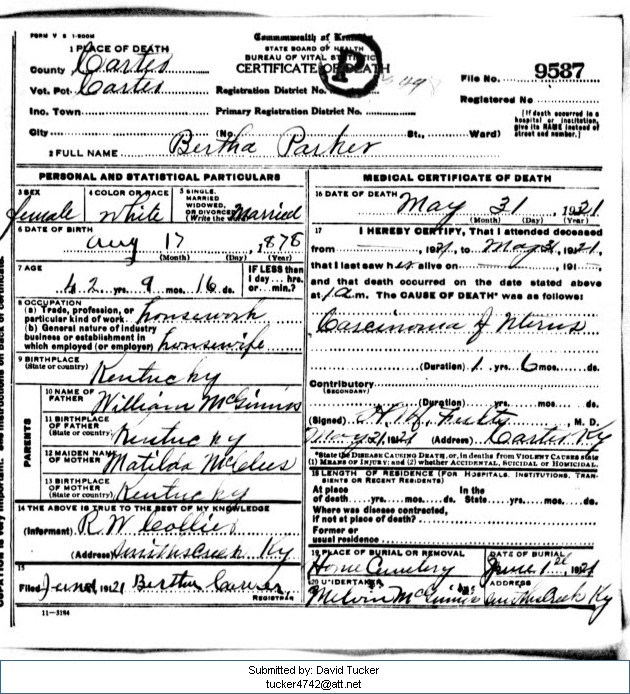 FORM V S 1-500M
Commonwealth of Kentucky
STATE BOARD OF HEALTH
BUREAU OF VITAL STATISTICS
CERTIFICATE OF DEATH
P
File No. 9587
Registered No.
[If death occurred in a hospital or institution, give its NAME instead of street and number.]
1 PLACE OF DEATH
County Carter
Vot. Pct. Carter
Registration District No. 49
Inc. Town
Primary Registration District No.
City (No. St., Ward)
2 FULL NAME Bertha Parker
PERSONAL AND STATISTICAL PARTICULARS
3 SEX female
4 COLOR OR RACE White
5 SINGLE, MARRIED WIDOWED, OR DIVORCED (Write the word) Married
6 DATE OF BIRTH
Aug 17, 1878
(Month) (Day) (Year)
7 AGE
42 yrs. 9 mos. 16 ds.
IF LESS than 1 day... hrs. or... min.?
8 OCCUPATION
(a) Trade, profession, or particular kind of work housework
(b) General nature of industry business or establishment in which employed (or employer) housewife
9 BIRTHPLACE
(State or country) Kentucky
PARENTS
10 NAME OF FATHER William McGinnis
11 BIRTHPLACE OF FATHER
(State or country) Kentucky
12 MAIDEN NAME OF MOTHER Matilda
13 BIRTHPLACE OF MOTHER
(State or country) Kentucky
14 THE ABOVE IS TRUE TO THE BEST OF MY KNOWLEDGE
(Informant) R W Collier
(Address) Ky
15
Filed June 1, 1921 Bertha
REGISTRAR
11-3184
MEDICAL CERTIFICATE OF DEATH
16 DATE OF DEATH May 31, 1921
(Month) (Day) (Year)
17 I HEREBY CERTIFY, That I attended deceased
from , 1921, to May 31, 1921,
that I last saw her alive on , 191
and that death occurred on the date stated above
at 1 a.m. The CAUSE OF DEATH* was as follows:
Carcinoma of Uterus
(Duration) 1 yrs. 6 mos. ds.
Contributory
(SECONDARY)
(Duration) yrs. mos. ds.
(Signed) , M. D.
1921 (Address) Carter Ky
*State the DISEASE CAUSING DEATH, or, in deaths from VIOLENT CAUSES state
(1) MEANS OF INJURY; and (2) whether ACCIDENTAL, SUICIDAL or HOMICIDAL.
18 LENGTH OF RESIDENCE (FOR HOSPITALS, INSTITUTIONS, TRANSIENTS OR RECENT RESIDENTS)
At place of death yrs. mos. ds. In the State yrs. mos. ds.
Where was disease contracted,
if not at place of death?
Former or
usual residence
19 PLACE OF BURIAL OR REMOVAL
Home Cemetery
DATE OF BURIAL
June 1st, 1921
20 UNDERTAKER
Melvin McGinnis
ADDRESS
Ky
Submitted by: David Tucker
tucker4742@att.net